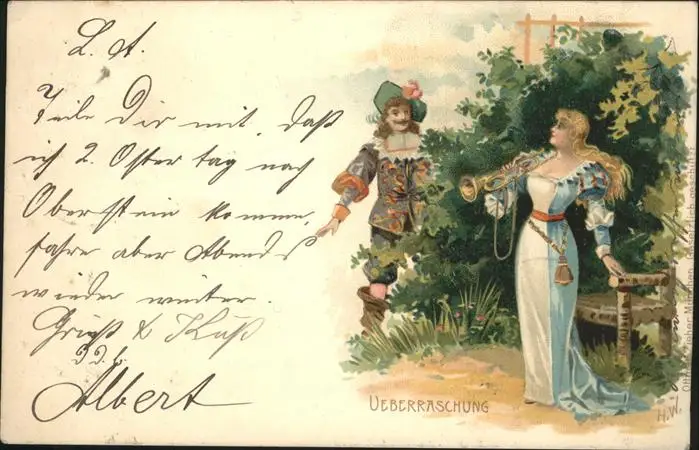 L. A.
Teile Dir mit, daß
ich 2. Ostertag nach
Oberstein komme,
fahre aber Abends
wieder weiter.
Gruß & Kuß
Albert
UEBERRASCHUNG
H.W.